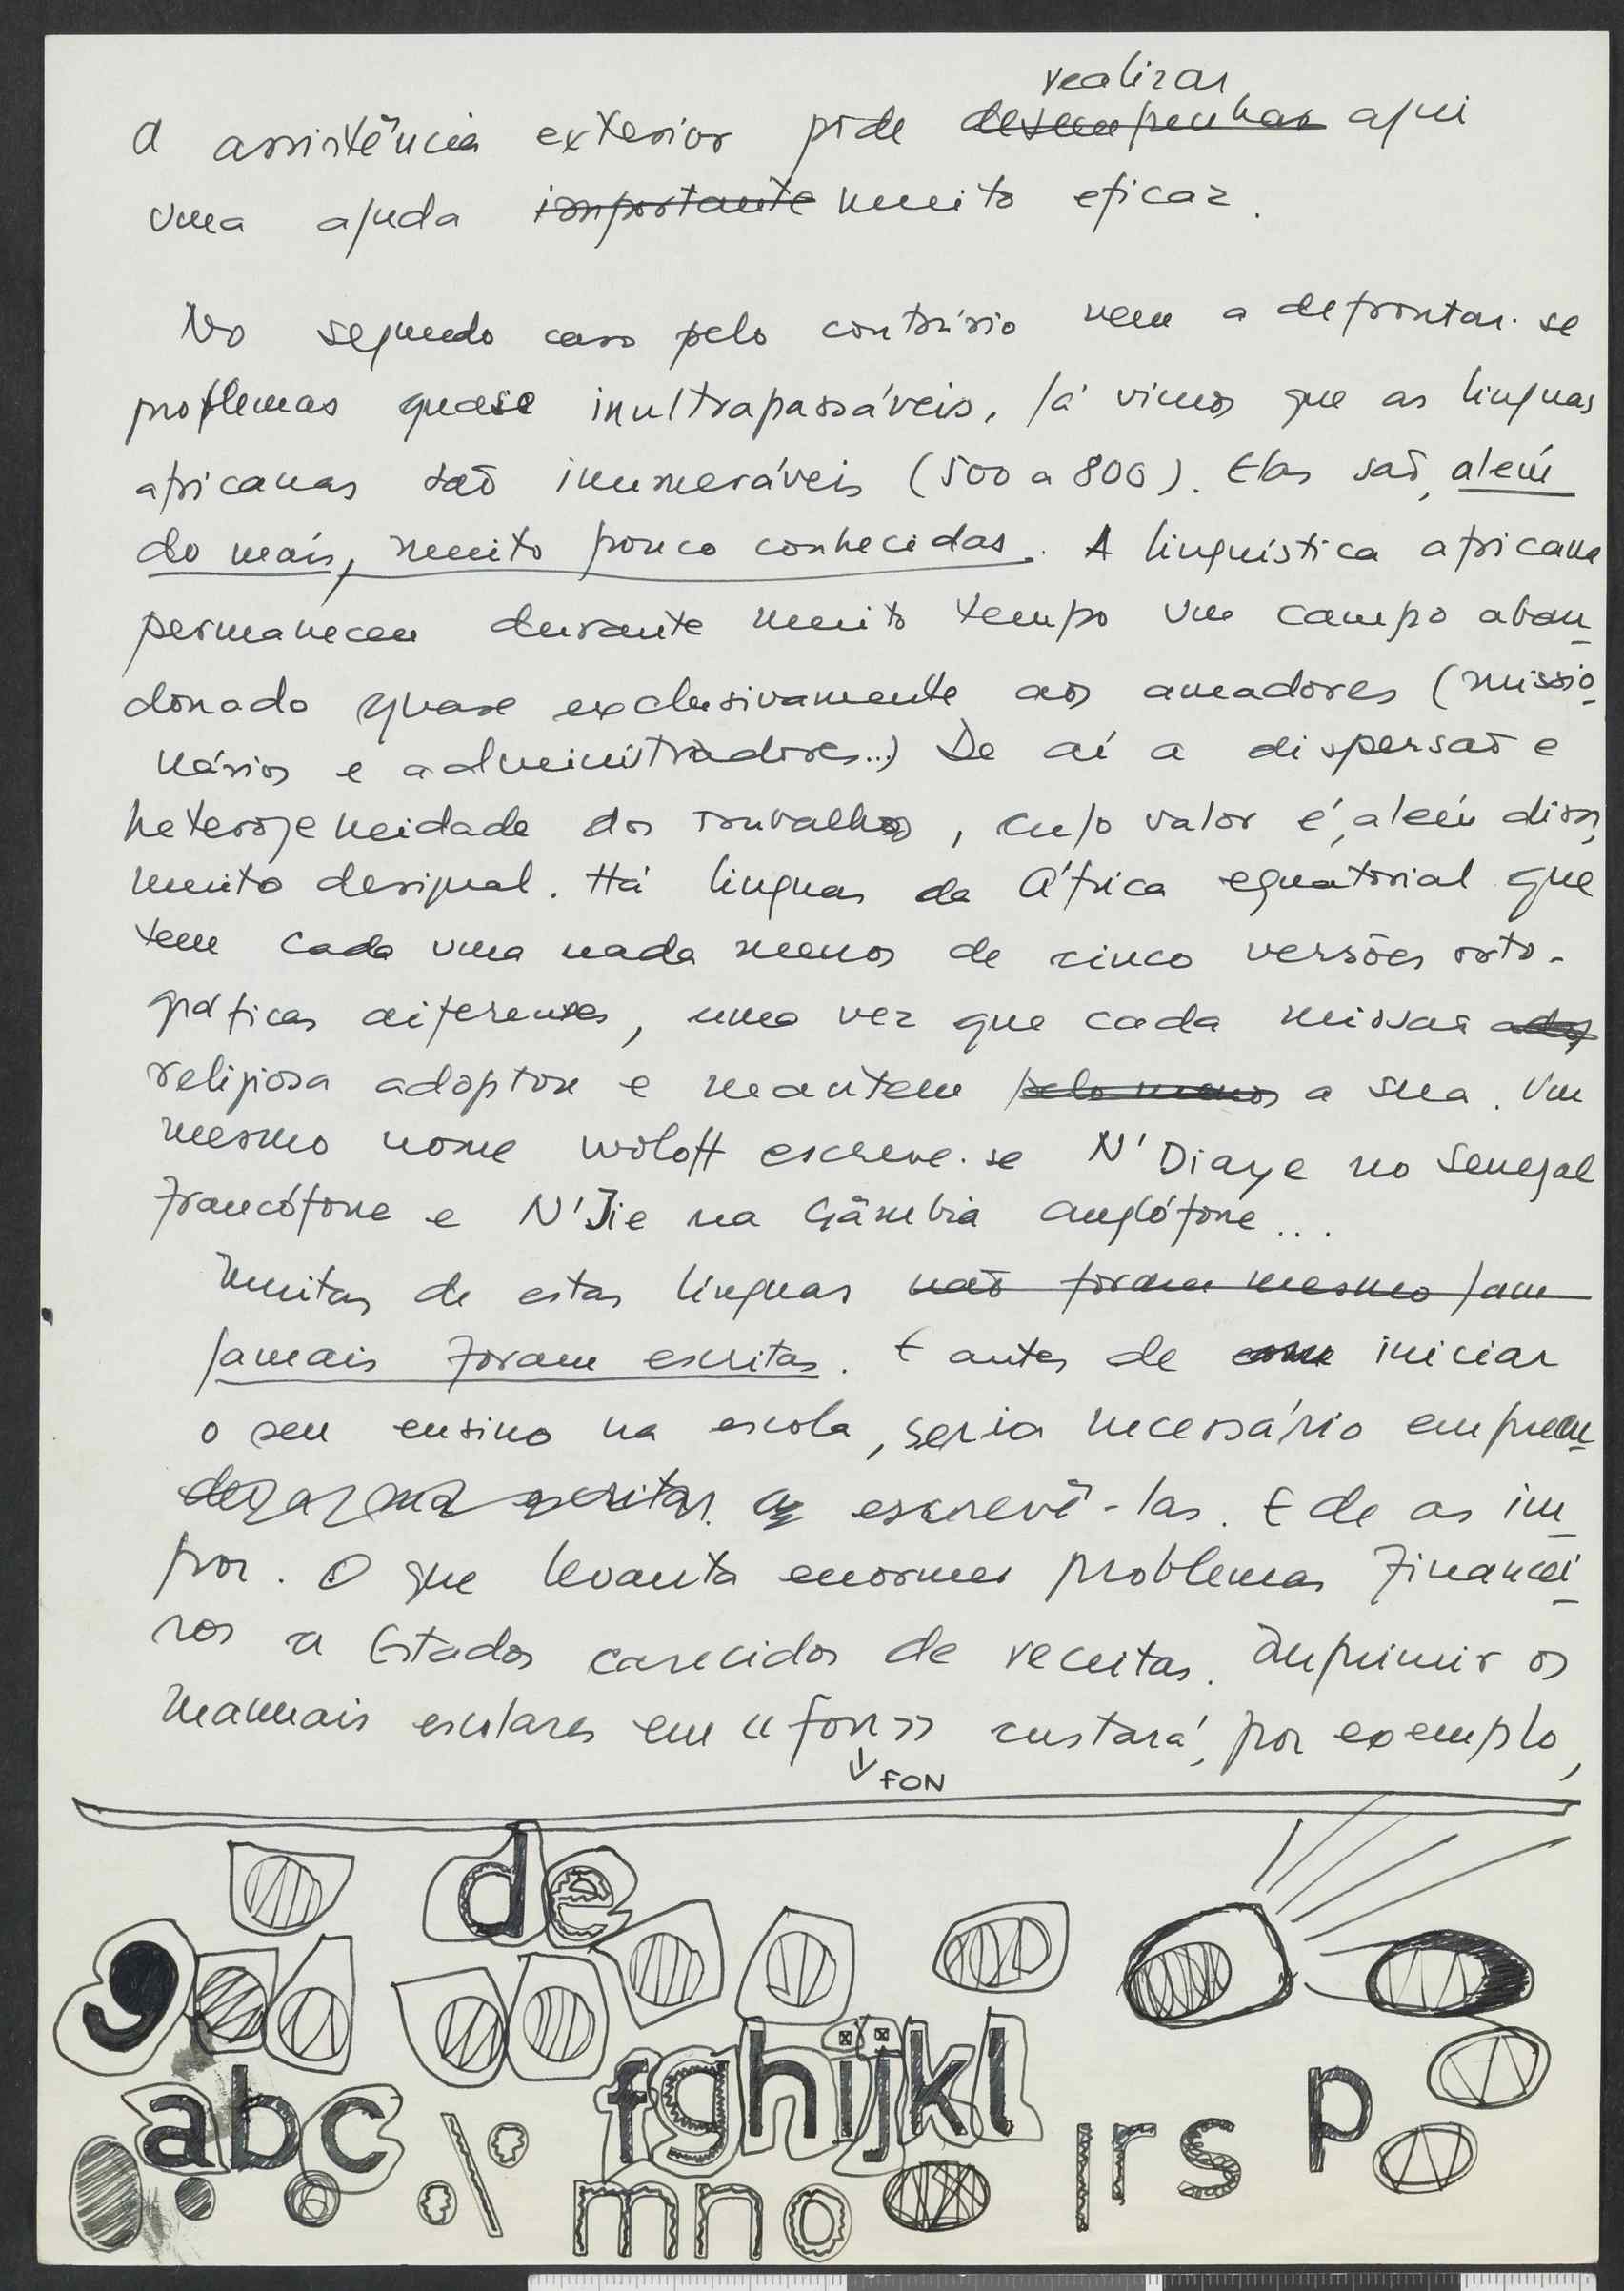 realizar
A assistência exterior pode desempenhar aqui
uma ajuda importante muito eficaz.
No segundo caso pelo contrário vem a defrontar-se
problemas quase inultrapassáveis. Já vimos que as linguas
africanas são inumeráveis (500 a 800). Elas são, além
do mais, muito pouco conhecidas. A linguística africana
permaneceu durante muito tempo um campo aban-
donado quase exclusivamente aos amadores (missio-
nários e administradores...) De aí a dispersão e
heterogeneidade dos trabalhos, cujo valor é, além disso,
muito desigual. Há linguas da África equatorial que
tem cada uma nada menos de cinco versões orto-
gráficas diferentes, uma vez que cada missão
religiosa adoptou e mantem pelo menos a sua. Um
mesmo nome woloff escreve-se N'Diaye no Senegal
francófone e N'Jie na Gâmbia anglófone...
Muitas de estas linguas não foram mesmo jam
jamais foram escritas. E antes de iniciar
o seu ensino na escola, seria necessário empreen-
escrevê-las. E de as im-
por. O que levanta enormes problemas financei-
ros a Estados carecidos de receitas. Imprimir os
manuais escolares em «fon» custará, por exemplo,
FON
de
9
abc
fghijkl
mno
rs
p